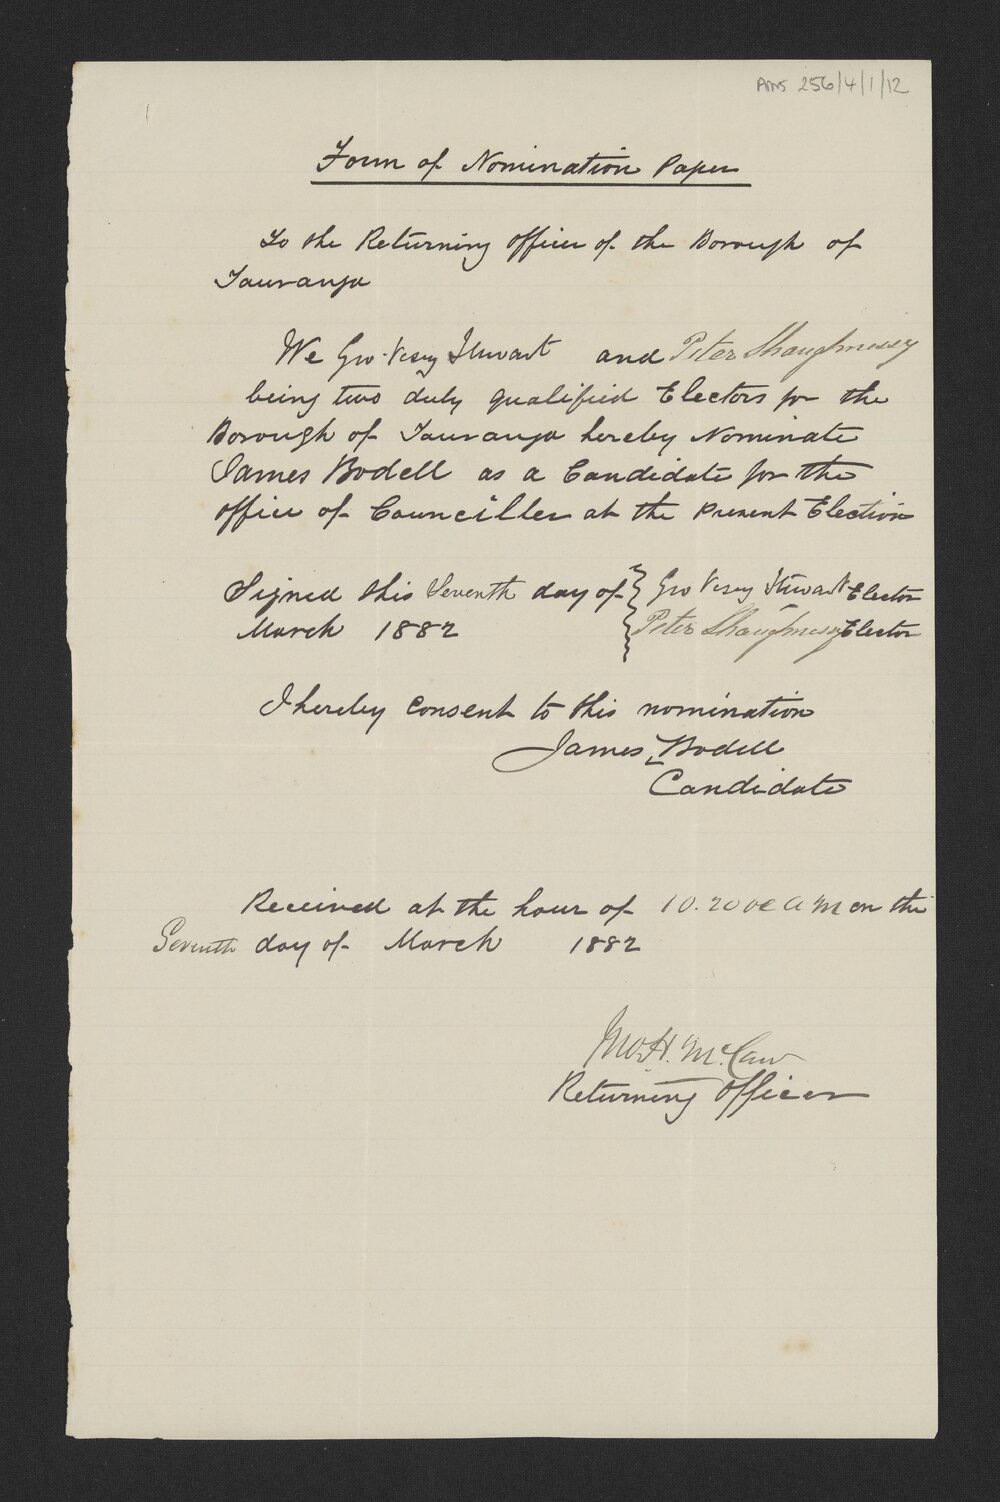 Ams 256/4/1/12
Form of Nomination Paper
To the Returning Officer of the Borough of
Tauranga
We Geo Vesey Stewart and Peter Shaughnessy
being two duly qualified Electors for the
Borough of Tauranga hereby Nominate
James Bodell as a Candidate for the
office of Counciller at the Present Election
Signed this Seventh day of } Geo Vesey Stewart Elector
March 1882 } Peter Shaughnessy Elector
I hereby consent to this nomination
James Bodell
Candidate
Received at the hour of 10.20 A M on the
Seventh day of March 1882
Jno. H. McCaw
Returning Officer